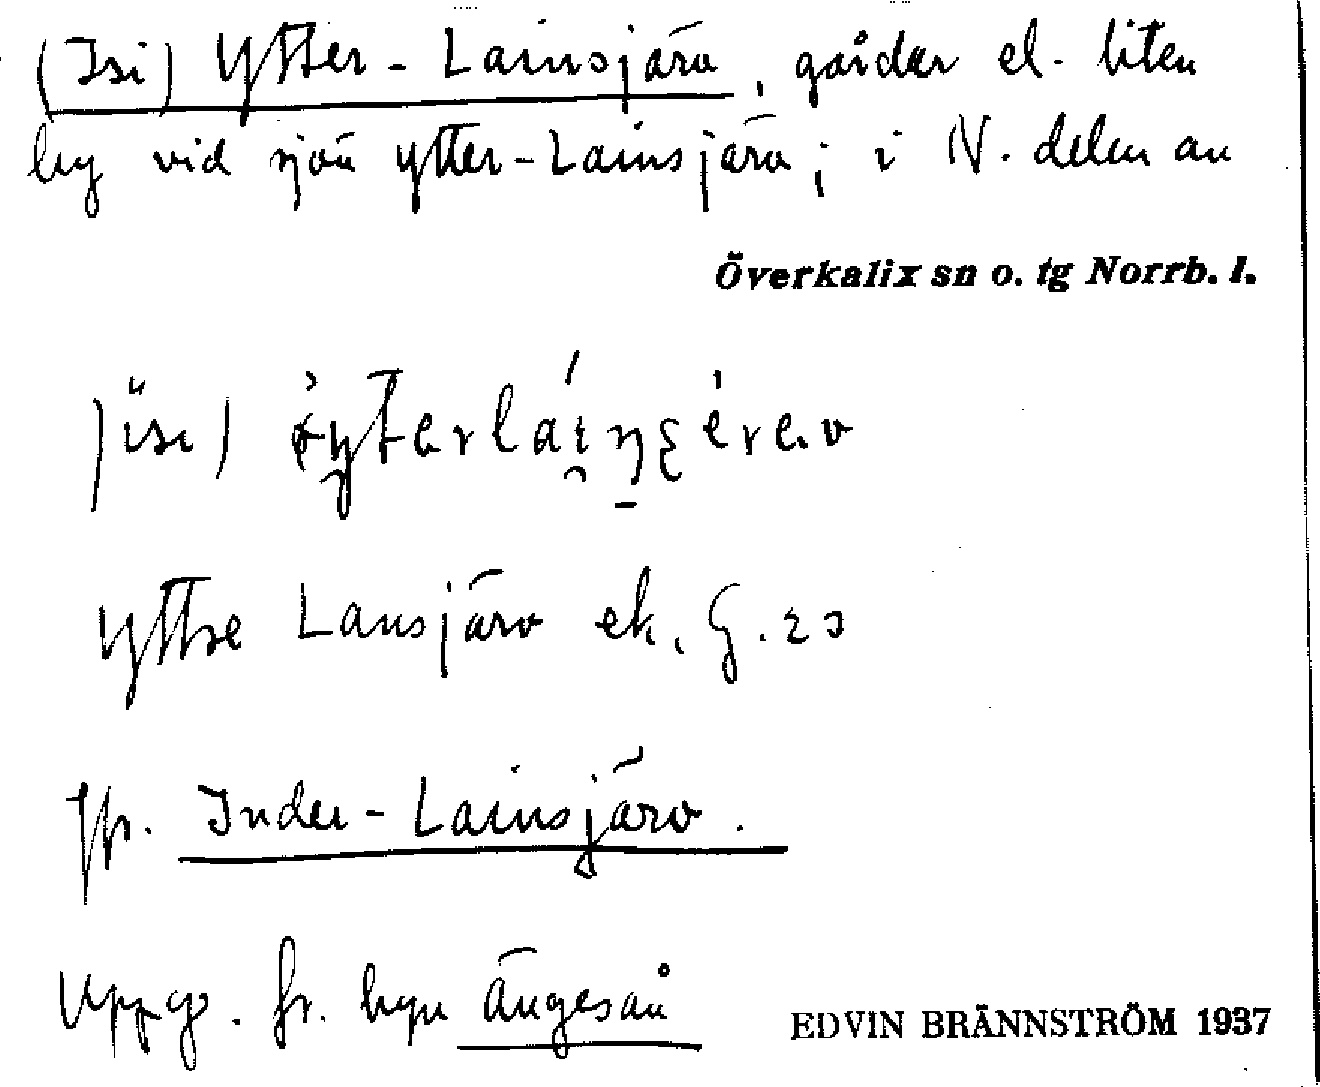 (Isi) Ytter-Lainsjärv, gårdar el. liten
by vid sjön Ytter-Lainsjärv; i N. delen av
Överkalix sn o. tg Norrb. l.
Yttre Lansjärv ek.
Jfr. Inder-Lainsjärv.
Uppg. fr. byn Ängesån
EDVIN BRÄNNSTRÖM 1937